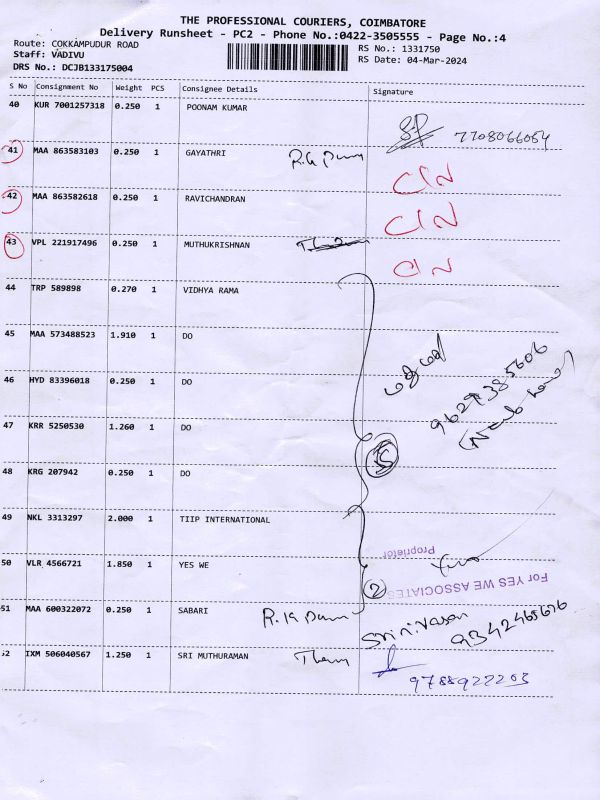 THE PROFESSIONAL COURIERS, COIMBATORE
Delivery Runsheet - PC2 - Phone No.:0422-3505555 - Page No.:4
Route: COKKAMPUDUR ROAD
RS No.: 1331750
Staff: VADIVU
RS Date: 04-Mar-2024
DRS No.: DCJB133175004
S No Consignment No Weight PCS Consignee Details Signature
40 KUR 7001257318 0.250 1 POONAM KUMAR
7708066054
41 MAA 863583103 0.250 1 GAYATHRI
42 MAA 863582618 0.250 1 RAVICHANDRAN
43 VPL 221917496 0.250 1 MUTHUKRISHNAN
44 TRP 589898 0.270 1 VIDHYA RAMA
45 MAA 573488523 1.910 1 DO
46 HYD 83396018 0.250 1 DO
9629385606
47 KRR 5250530 1.260 1 DO
5
48 KRG 207942 0.250 1 DO
49 NKL 3313297 2.000 1 TIIP INTERNATIONAL
Proprietor
50 VLR 4566721 1.850 1 YES WE
For YES WE ASSOCIATES
2
51 MAA 600322072 0.250 1 SABARI
Srinivasan
9342465676
52 IXM 506040567 1.250 1 SRI MUTHURAMAN
9788922203